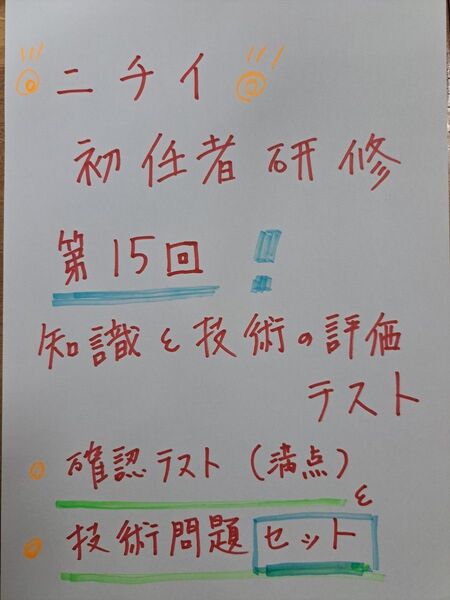 ニチイ
初任者研修
第15回!
知識と技術の評価
テスト
確認テスト(満点)と
技術問題セット